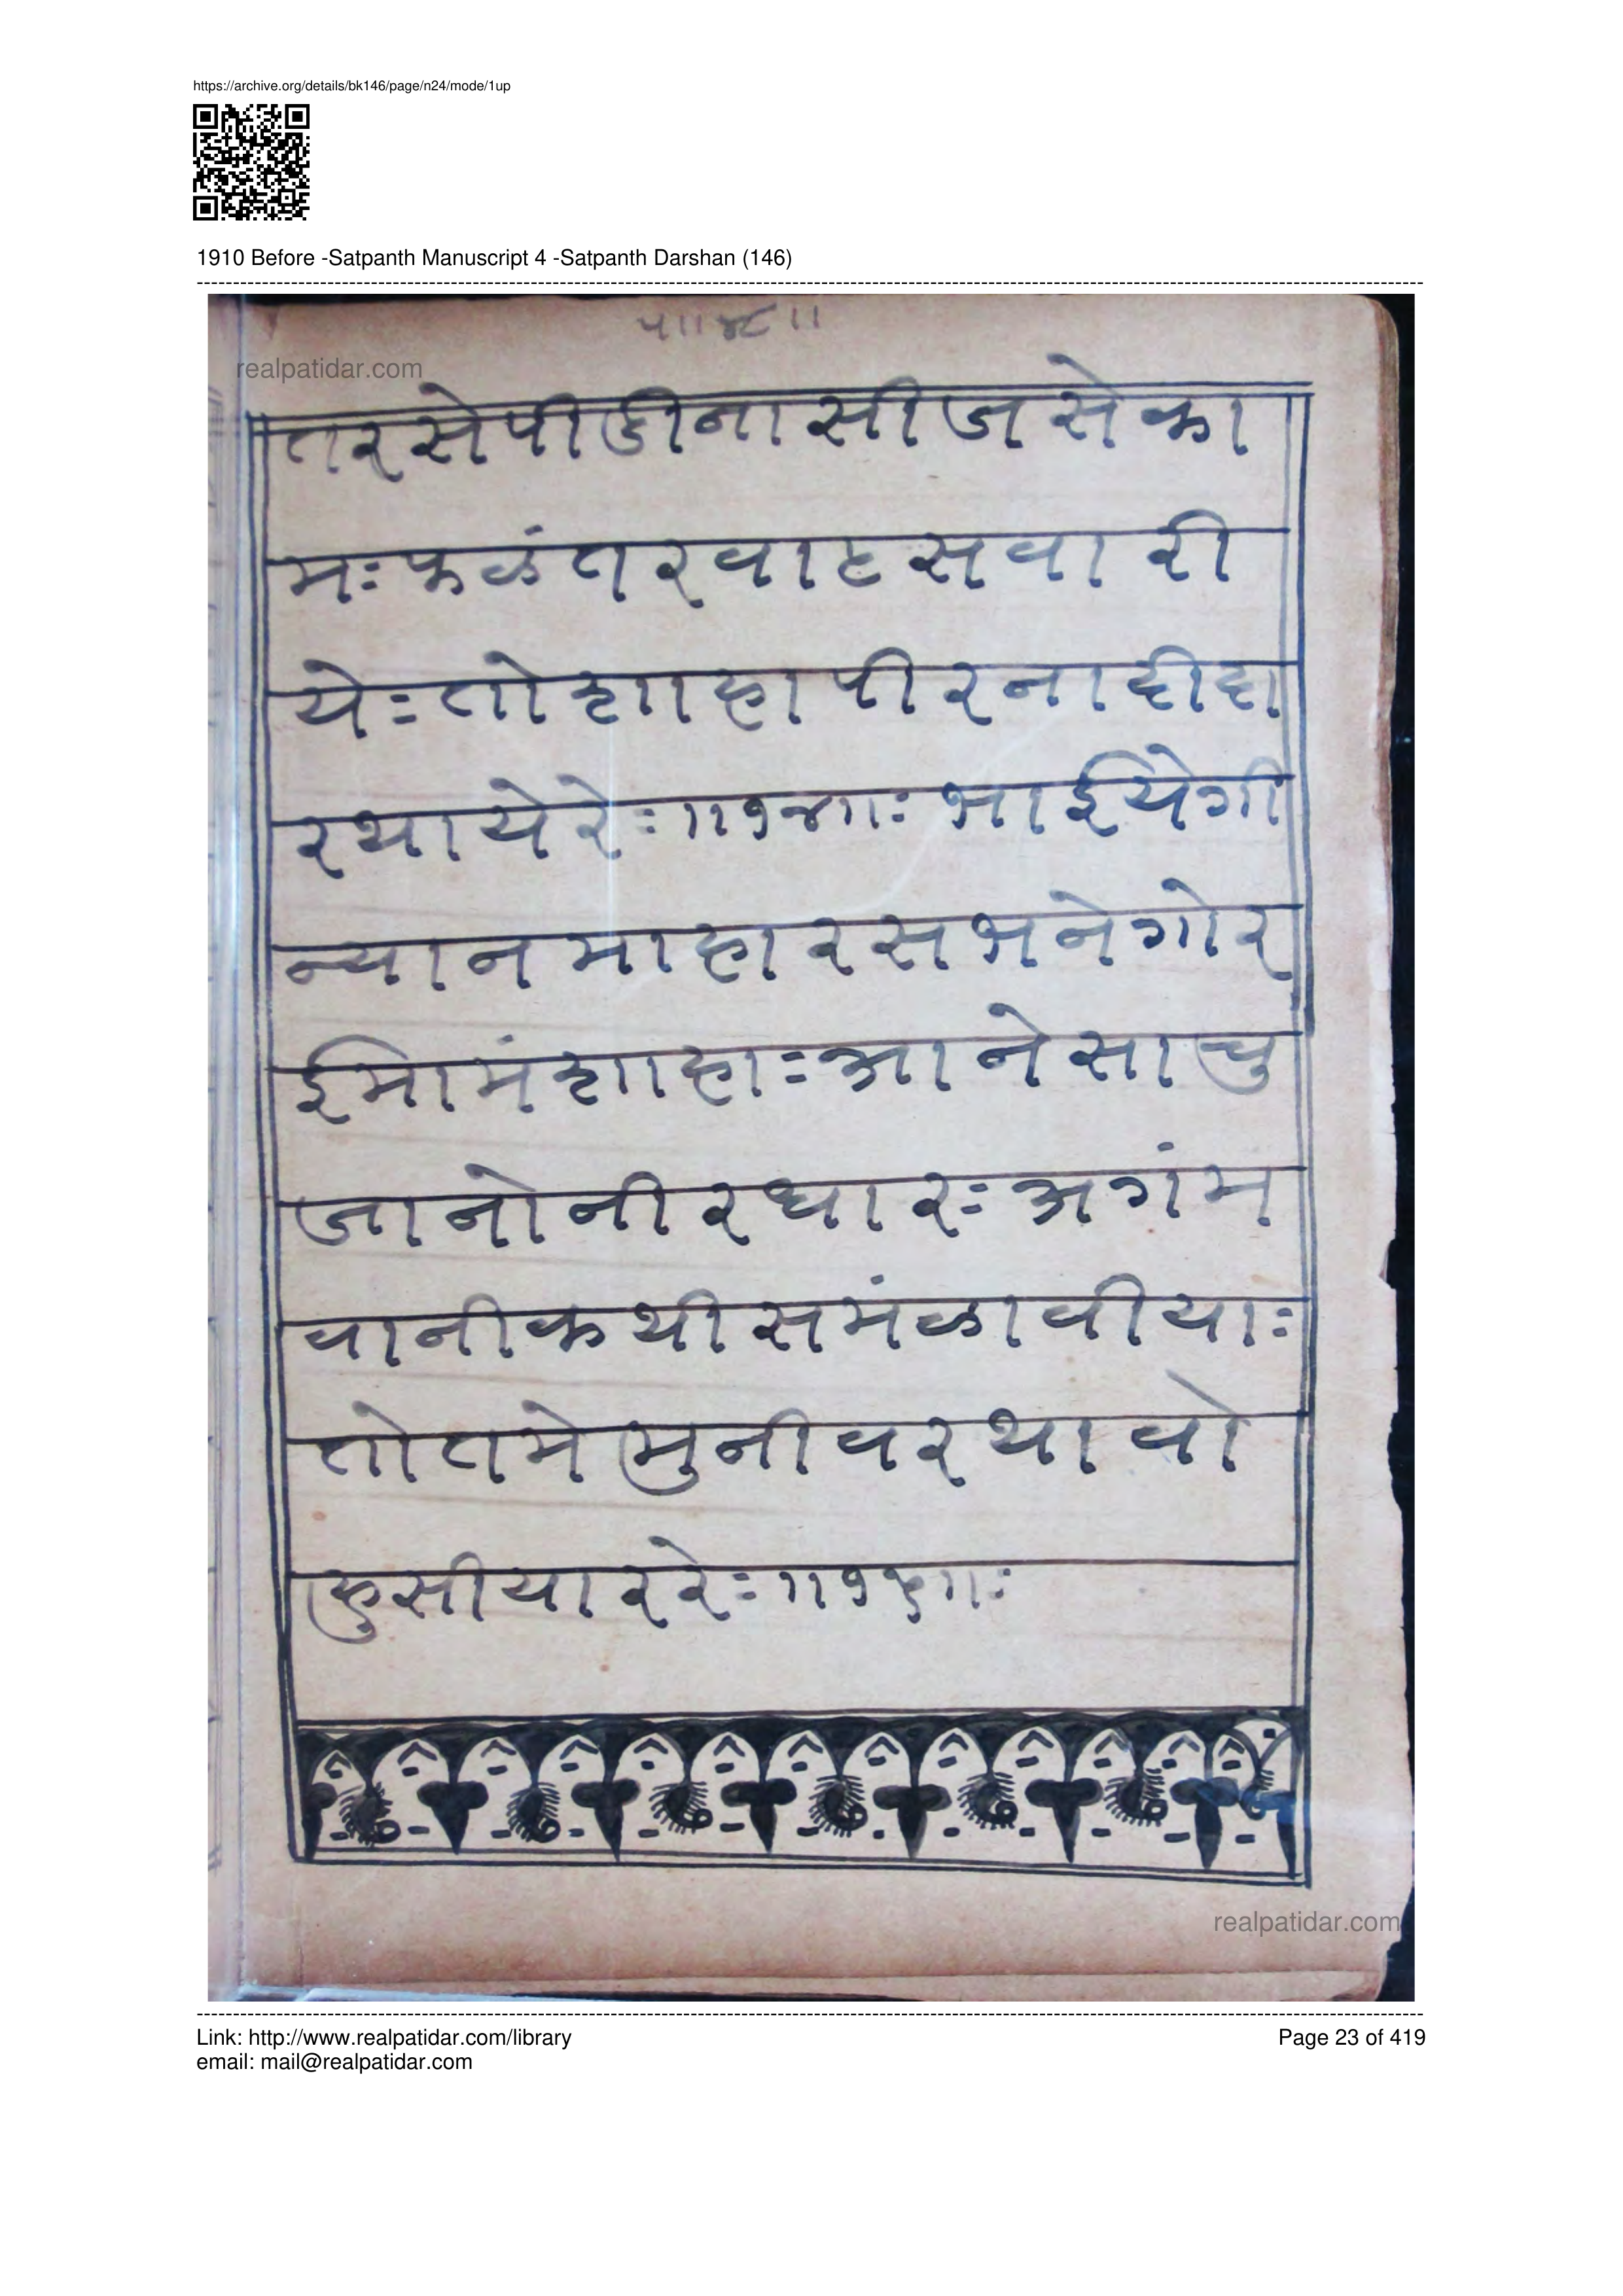 https://archive.org/details/bk146/page/n24/mode/1up
1910 Before -Satpanth Manuscript 4 -Satpanth Darshan (146)
realpatidar.com
तरसेपीडीनासीजसेका
मःफळंतरवाटसवारी
येःतोशाहापीरनाहीहा
रथायेरेः॥१४॥ःभाईयेगी
न्यानमाहारसभनेगोर
ईमामंशाहाःआनेसाचु
जानोनीरधारःअगंम
वानीकथीसमंळावीयाः
तोतमेमुनीवरथावो
हुसीयाररेः॥१५॥ः
realpatidar.com
Link: http://www.realpatidar.com/library
Page 23 of 419
email: mail@realpatidar.com